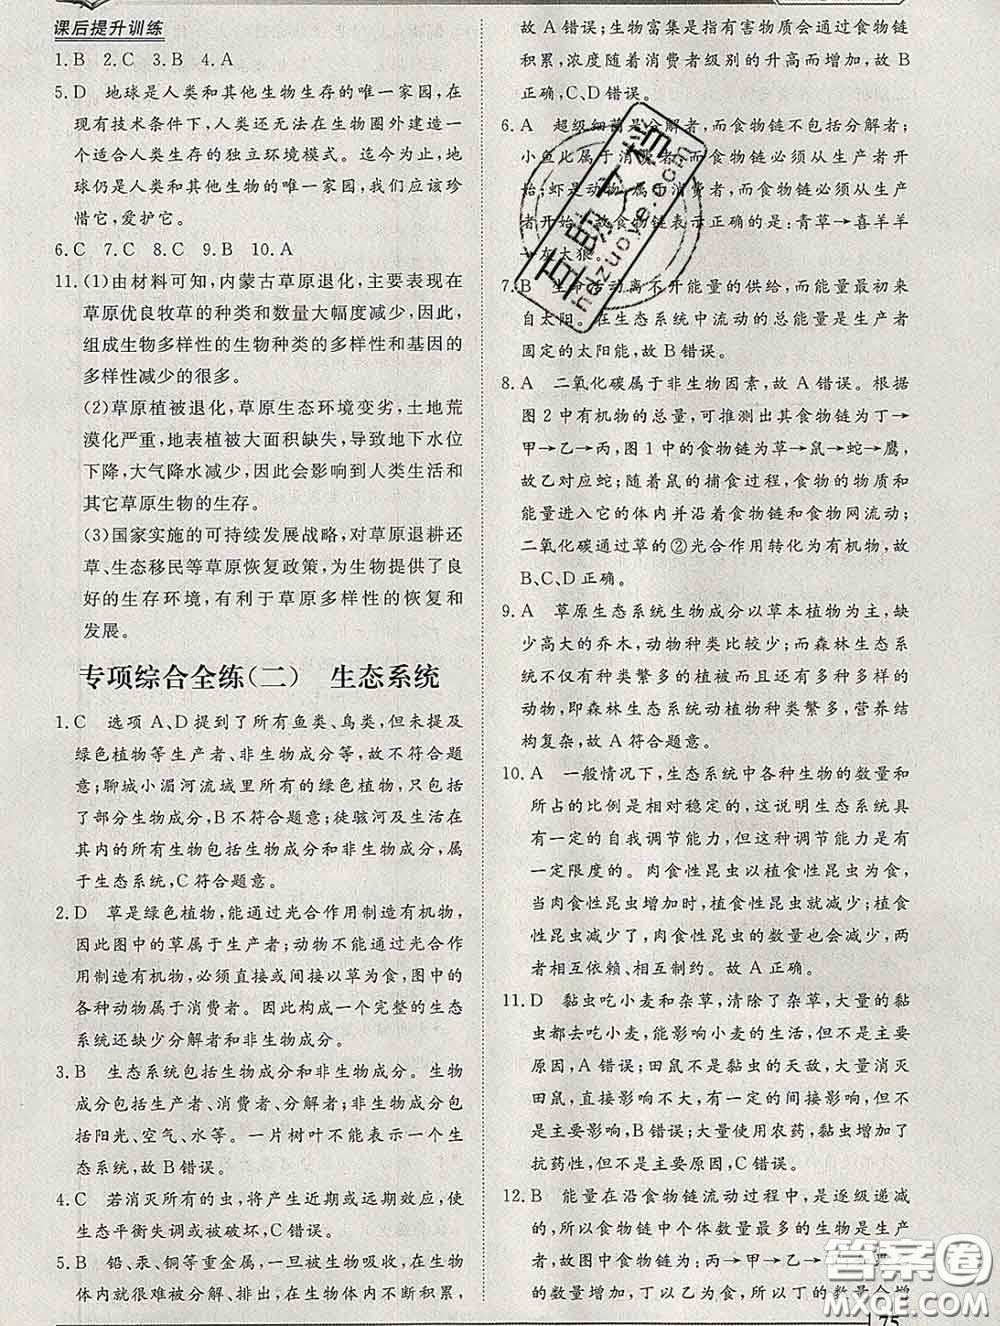 课后提升训练
1.B 2.C 3.B 4.A
5.D 地球是人类和其他生物生存的唯一家园,在
现有技术条件下,人类还无法在生物圈外建造一
个适合人类生存的独立环境模式。迄今为止,地
球仍是人类和其他生物的唯一家园,我们应该珍
惜它,爱护它。
6.C 7.C 8.C 9.B 10.A
11.(1)由材料可知,内蒙古草原退化,主要表现在
草原优良牧草的种类和数量大幅度减少,因此,
组成生物多样性的生物种类的多样性和基因的
多样性减少的很多。
(2)草原植被退化,草原生态环境变劣,土地荒
漠化严重,地表植被大面积缺失,导致地下水位
下降,大气降水减少,因此会影响到人类生活和
其它草原生物的生存。
(3)国家实施的可持续发展战略,对草原退耕还
草、生态移民等草原恢复政策,为生物提供了良
好的生存环境,有利于草原多样性的恢复和
发展。
专项综合全练(二) 生态系统
1.C 选项A、D提到了所有鱼类、鸟类,但未提及
绿色植物等生产者、非生物成分等,故不符合题
意;聊城小湄河流域里所有的绿色植物,只包括
了部分生物成分,B不符合题意;徒骇河及生活在
其内的所有生物包括生物成分和非生物成分,属
于生态系统,C符合题意。
2.D 草是绿色植物,能通过光合作用制造有机物,
因此图中的草属于生产者;动物不能通过光合作
用制造有机物,必须直接或间接以草为食,图中的
各种动物属于消费者。因此构成一个完整的生态
系统还缺少分解者和非生物成分。
3.B 生态系统包括生物成分和非生物成分。生物
成分包括生产者、消费者、分解者;非生物成分包
括阳光、空气、水等。一片树叶不能表示一个生
态系统,故B错误。
4.C 若消灭所有的虫,将产生近期或远期效应,使
生态平衡失调或被破坏,C错误。
5.B 铅、汞、铜等重金属,一旦被生物吸收,在生物
体内就很难被分解、排出,在生物体内不断积累,
故A错误;生物富集是指有害物质会通过食物链
积累,浓度随着消费者级别的升高而增加,故B
正确,C、D错误。
6.A 超级细菌是分解者,而食物链不包括分解者;
小鱼比属于消费者,而食物链必须从生产者开
始;虾是动物属于消费者,而食物链必须从生产
者开始。故食物链表示正确的是:青草→喜羊羊
→灰太狼。
7.B 生命活动离不开能量的供给,而能量最初来
自太阳。在生态系统中流动的总能量是生产者
固定的太阳能,故B错误。
8.A 二氧化碳属于非生物因素,故A错误。根据
图2中有机物的总量,可推测出其食物链为丁→
甲→乙→丙,图1中的食物链为草→鼠→蛇→鹰,
故乙对应蛇;随着鼠的捕食过程,食物的物质和
能量进入它的体内并沿着食物链和食物网流动;
二氧化碳通过草的②光合作用转化为有机物,故
B、C、D正确。
9.A 草原生态系统生物成分以草本植物为主,缺
少高大的乔木,动物种类比较少;而森林生态系
统不但有种类繁多的植被而且还有多种多样的
动物,即森林生态系统动植物种类繁多,营养结
构复杂,故A符合题意。
10.A 一般情况下,生态系统中各种生物的数量和
所占的比例是相对稳定的,这说明生态系统具
有一定的自我调节能力,但这种调节能力是有
一定限度的。肉食性昆虫以植食性昆虫为食,
当肉食性昆虫增加时,植食性昆虫减少,植食性
昆虫减少了,肉食性昆虫的数量也会减少,两
者相互依赖、相互制约。故A正确。
11.D 黏虫吃小麦和杂草,清除了杂草,大量的黏
虫都去吃小麦,能影响小麦的生活,但不是主要
原因,A错误;田鼠不是黏虫的天敌,大量消灭
田鼠,直接影响不大,有一定的间接影响,但不
是主要影响,B错误;大量使用农药,黏虫增加了
抗药性,但不是主要因素,C错误。
12.B 能量在沿食物链流动过程中,是逐级递减
的,所以食物链中个体数量最多的生物是生产
者,故图中食物链为:丙→甲→乙→丁
的数量增加,丁以乙为食,所以丁的数量会增
75
百度文档
hdzuoye.com
答案圈
MXQE.COM